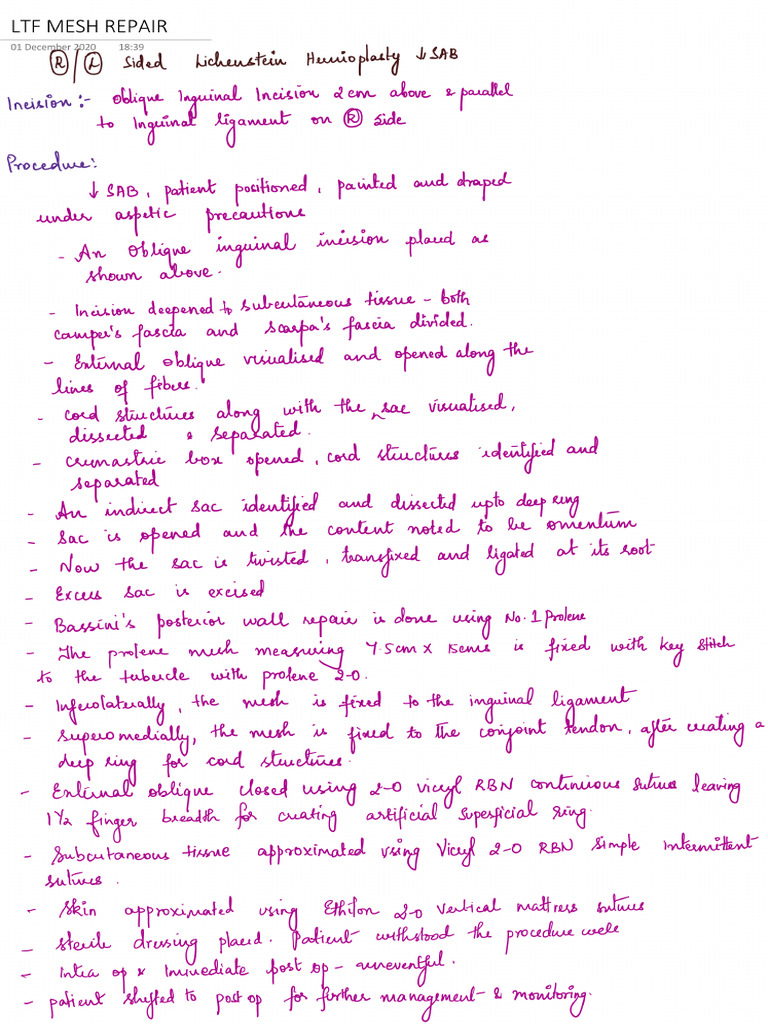 LTF MESH REPAIR
01 December 2020 18:39
Ⓡ/Ⓛ Sided Lichenstein Hernioplasty ↓ SAB
Incision:- Oblique Inguinal Incision 2cm above & parallel
to Inguinal ligament on Ⓡ side
Procedure:
↓ SAB, patient positioned, painted and draped
under aspetic precautions
- An oblique inguinal incision placed as
shown above.
- Incision deepened to subcutaneous tissue - both
camper's fascia and scarpa's fascia divided.
- External oblique visualised and opened along the
lines of fibres.
- cord structures along with the sac visualised,
dissected & separated.
- cremastric box opened, cord structures identified and
separated
- An indirect sac identified and dissected upto deep ring
- Sac is opened and the content noted to be omentum
- Now the sac is twisted, transfixed and ligated at its root
- Excess sac is excised
- Bassini's posterior wall repair is done using No.1 prolene
- The prolene mesh measuring 7.5cm x 15cms is fixed with key stitch
to the tubercle with prolene 2-0.
- Inferolaterally, the mesh is fixed to the inguinal ligament
- Superomedially, the mesh is fixed to the conjoint tendon, after creating a
deep ring for cord structures.
- External oblique closed using 2-0 vicryl RBN continuous sutures leaving
1½ finger breadth for creating artificial superficial ring.
- Subcutaneous tissue approximated using Vicryl 2-0 RBN simple intermittent
sutures.
- Skin approximated using Ethilon 2-0 vertical mattress sutures
- Sterile dressing placed. Patient withstood the procedure well
- Intra op & Immediate post op - uneventful.
- patient shifted to post op for further management & monitoring.